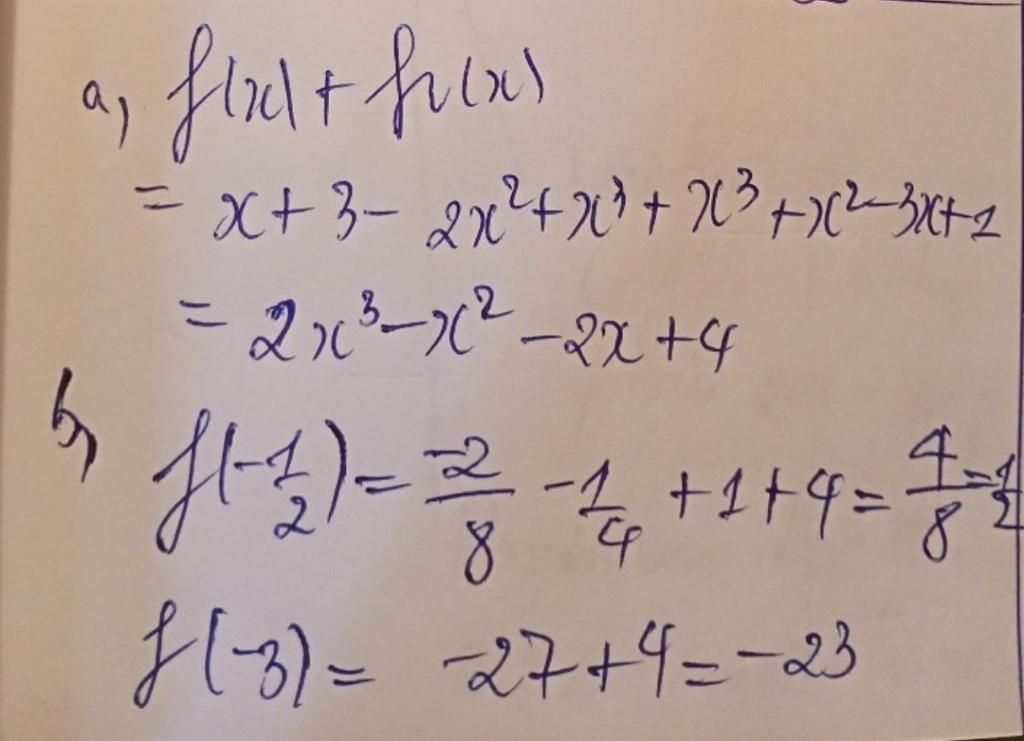 a, f(x) + h(x)
= x + 3 - 2x² + x³ + x³ + x² - 3x + 1
= 2x³ - x² - 2x + 4
b, f(-1/2) = -2/8 - 1/4 + 1 + 4 = 4/8 = 1/2
f(-3) = -27 + 4 = -23